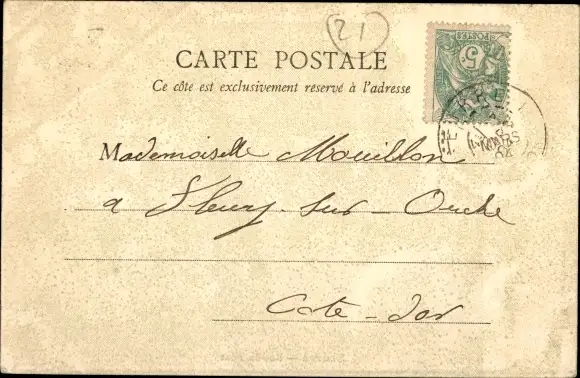 21
CARTE POSTALE
Ce côté est exclusivement réservé à l'adresse
POSTES
5
MARS
04
Mademoiselle Mouillon
a Fleury-sur-Ouche
Cote-d'or